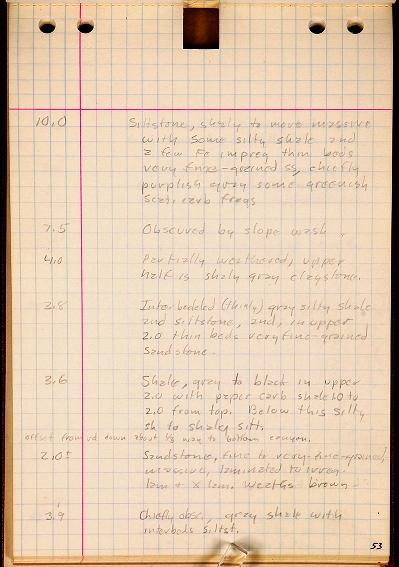 10.0 Siltstone, shaly to more massive
with some silty shale and
a few Fe impreg thin beds
very fine-grained ss, chiefly
purplish gray some greenish
scat. carb frags
7.5 Obscured by slope wash.
4.0 Partially weathered, upper
half is shaly gray claystone.
3.8 Interbedded (thinly) gray silty shale
and siltstone, and, in upper
2.0 thin beds very fine-grained
sandstone.
3.6 Shale, gray to black in upper
2.0 with paper carb shale 1.0 to
2.0 from top. Below this silty
sh to shaly siltst.
offset from rd down about 1/3 way to bottom canyon.
2.0± Sandstone, fine to very-fine-grained,
massive, laminated to irreg.
lam + x lam. Weaths brown
3.9 Chiefly obsc, gray shale with
interbeds siltst.
53